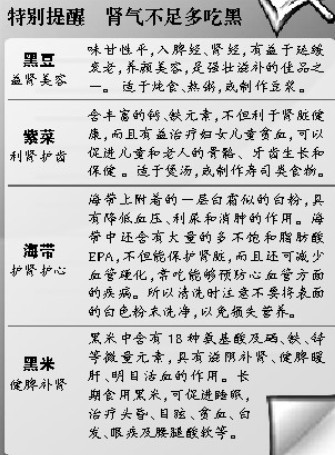 特别提醒 肾气不足多吃黑
黑豆
益肾美容
味甘性平,入脾经、肾经,有益于延缓
衰老,养颜美容,是强壮滋补的佳品之
一。 适于炖食、熬粥,或制作豆浆。
紫菜
利肾护齿
含丰富的钙、铁元素,不但利于肾脏健
康,而且有益治疗妇女儿童贫血,可以
促进儿童和老人的骨骼、牙齿生长和
保健。适于煲汤,或制作寿司类食物。
海带
护肾护心
海带上附着的一层白霜似的白粉,具
有降低血压、利尿和消肿的作用。海
带中还含有大量的多不饱和脂肪酸
EPA,不但能保护肾脏,而且还可减少
血管硬化,常吃能够预防心血管方面
的疾病。所以清洗时注意不要将表面
的白色粉末洗净,以免损失营养。
黑米
健脾补肾
黑米中含有 18 种氨基酸及硒、铁、锌
等微量元素,具有滋阴补肾、健脾暖
肝、明目活血的作用。长
期食用黑米,可促进睡眠,
治疗头昏、目眩、贫血、白
发、眼疾及腰腿酸软等。